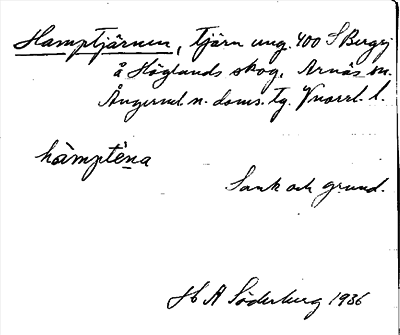 Hamptjärnen, tjärn ung. 400 S Bergsj
å Höglands skog, Arnäs sn.
Ångerml. n. doms. tg. Vnorrl. l.
hàmpténa
Sank och grund.
H A Söderberg 1936